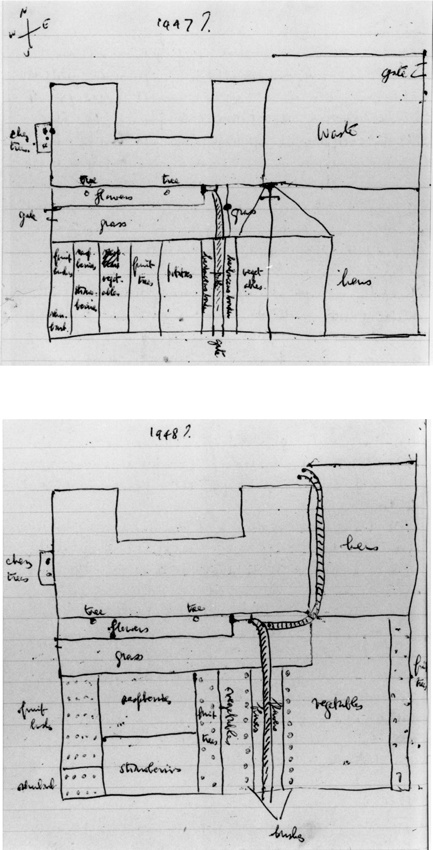 N
W E
S
1947?
gate
waste
tree
tree
flowers
gate
grass
grass
fruit
bushes
rasp-
berries
straw-
berries
veget-
ables
fruit
trees
potatoes
herbaceous border
path
herbaceous border
veget-
ables
hens
gate
1948?
hens
trees
tree
tree
flowers
grass
fruit
bushes
raspberries
strawberries
fruit
trees
vegetables
flowers
flowers
vegetables
fruit
trees
rhubarb
bushes